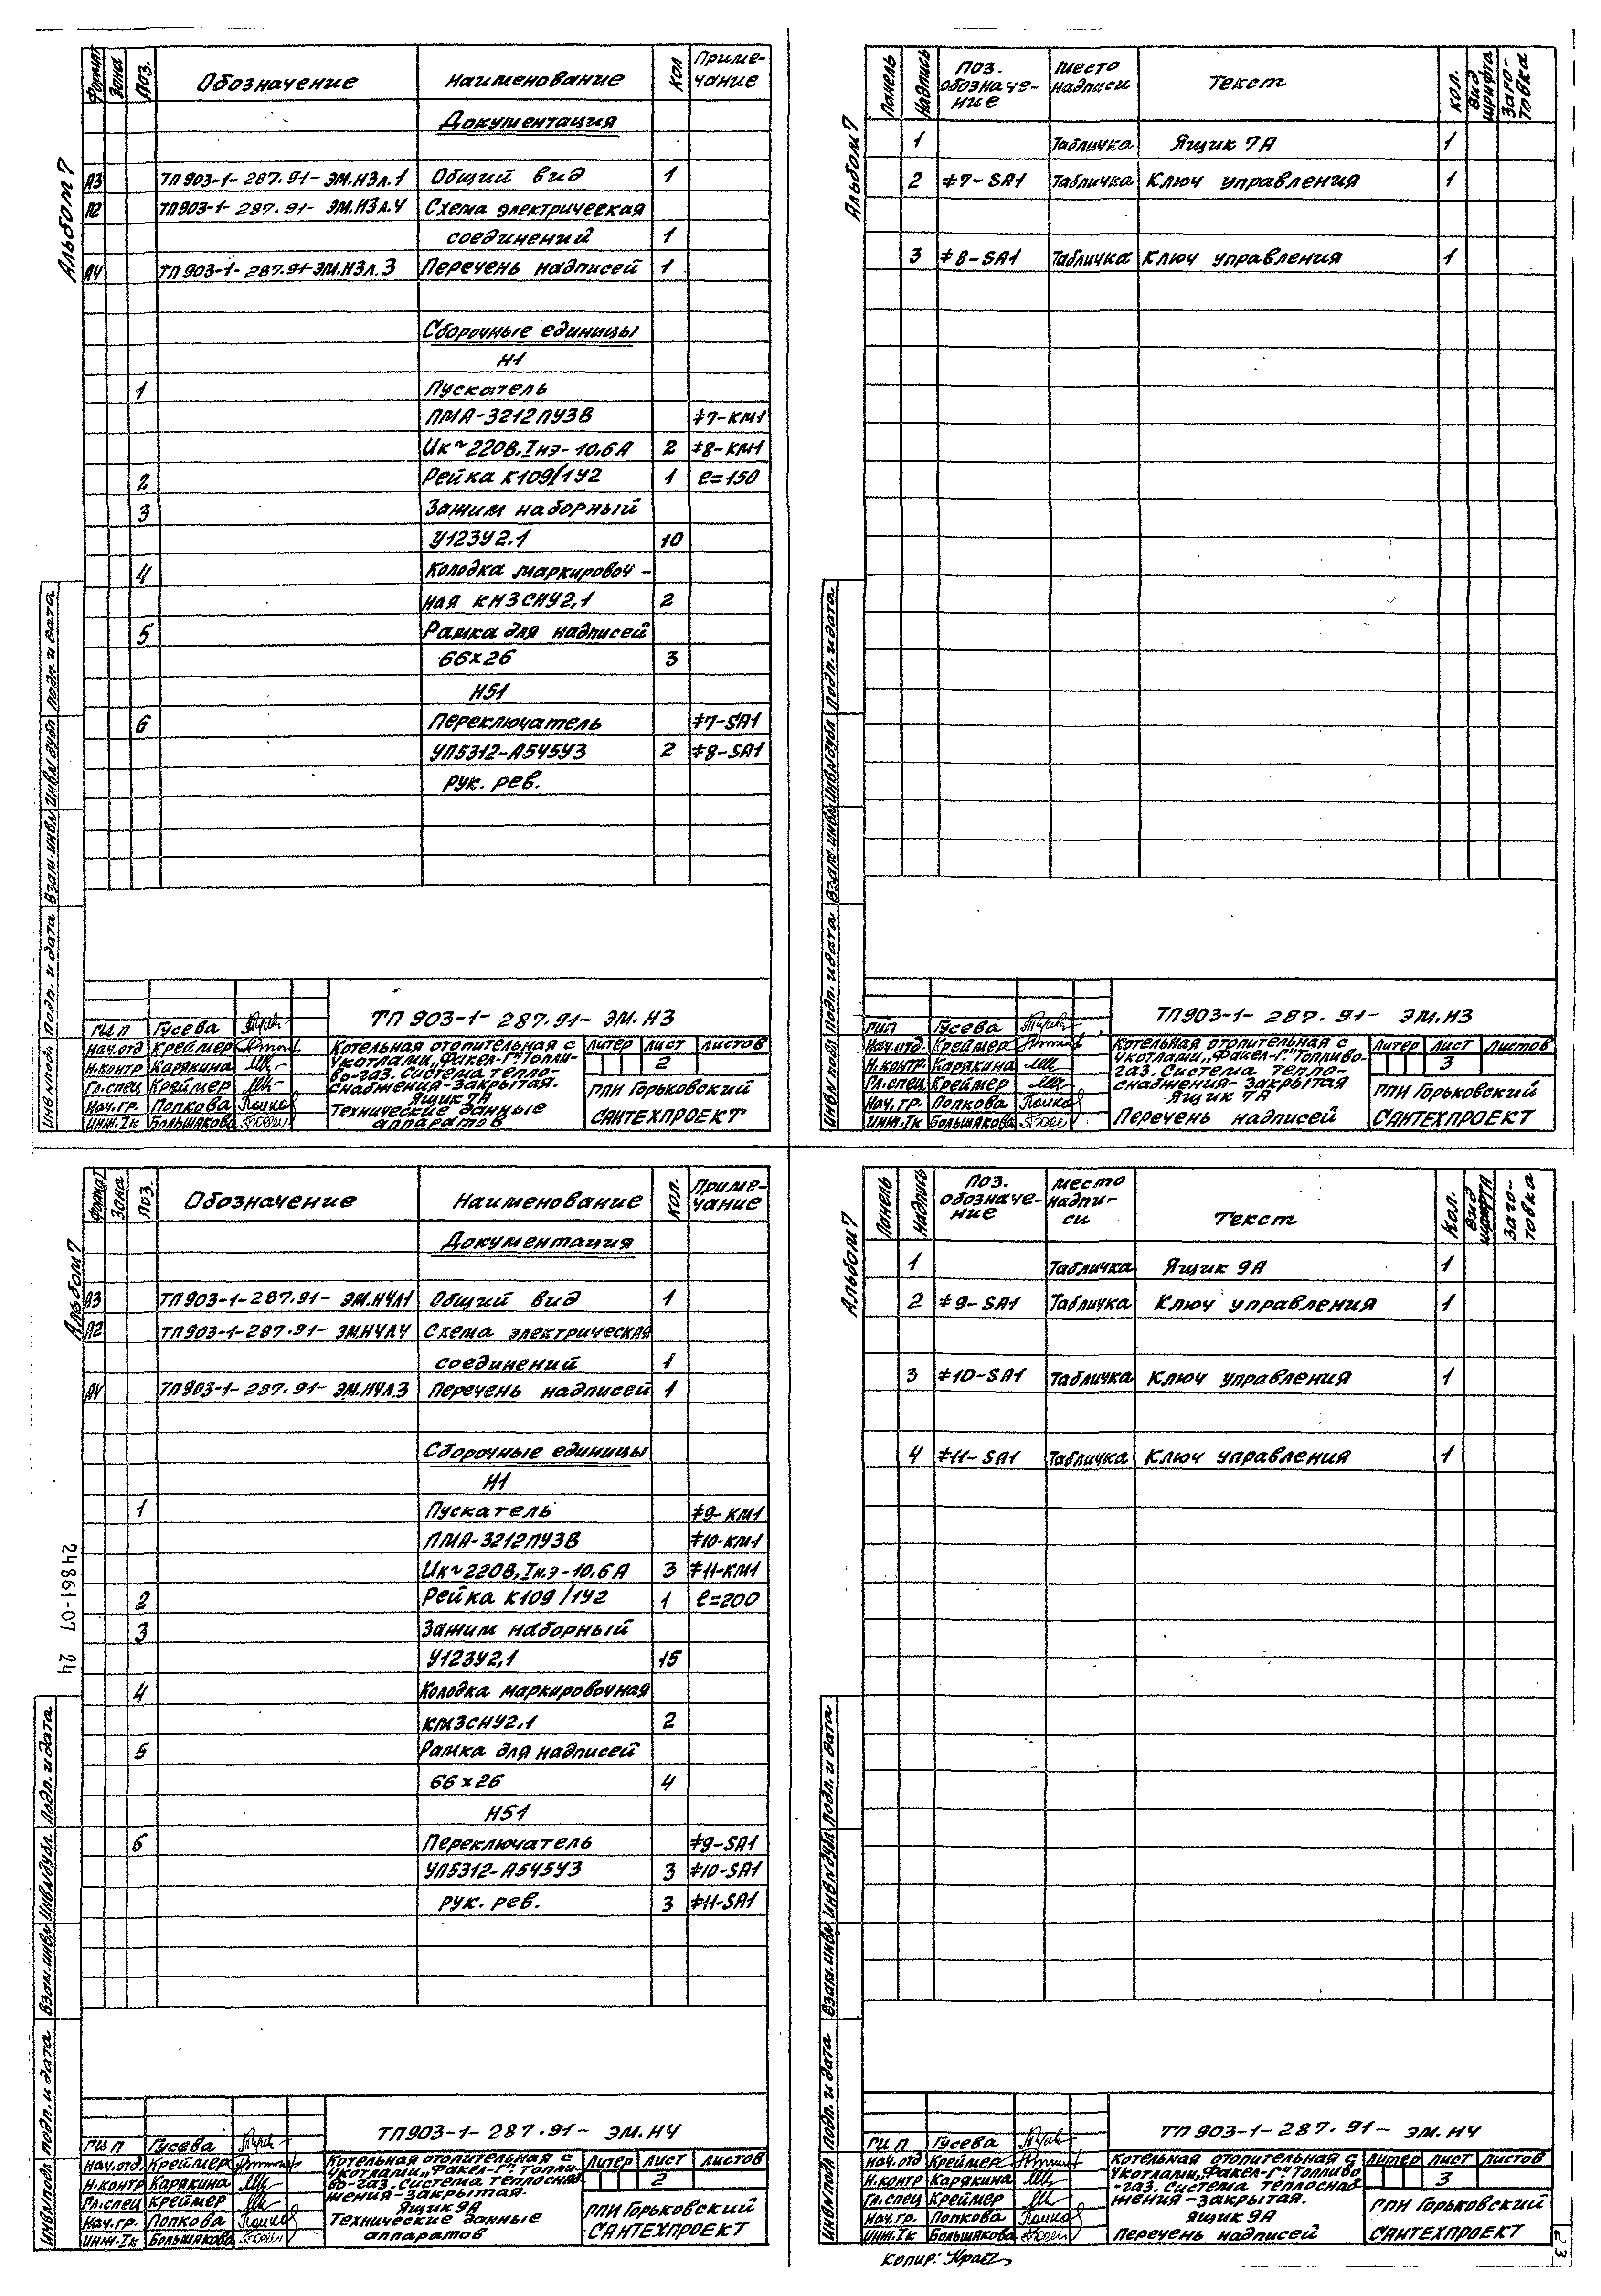 Альбом 7
Формат Зона Поз. Обозначение Наименование Кол Приме-
чание
Документация
А3 ТП903-1-287.91-ЭМ.Н3л.1 Общий вид 1
А2 ТП903-1-287.91-ЭМ.Н3л.4 Схема электрическая
соединений 1
А4 ТП903-1-287.91-ЭМ.Н3л.3 Перечень надписей 1
Сборочные единицы
Н1
1 Пускатель
ПМА-3212ПУ3В ≠7-КМ1
Uк~220В, Iнэ-10,6А 2 ≠8-КМ1
2 Рейка К109/1У2 1 ℓ=150
3 Зажим наборный
У123У2.1 10
4 Колодка маркировоч-
ная КМ3СНУ2,1 2
5 Рамка для надписей
66х26 3
Н51
6 Переключатель ≠7-SA1
УП5312-А545У3 2 ≠8-SA1
рук. рев.
Инв.№подл Подп. и дата Взам.инв№ Инв№дубл Подп. и дата
ТП 903-1-287.91-ЭМ.Н3
ГИП Гусева
Нач.отд Креймер
Н.контр Карякина
Гл.спец Креймер
Нач.гр. Попкова
Инж.Iк Большакова
Котельная отопительная с
4 котлами „Факел-Г". Топли-
во-газ. Система тепло-
снабжения-закрытая.
Ящик 7А
Технические данные
аппаратов
Литер Лист Листов
2
ГПИ Горьковский
САНТЕХПРОЕКТ
Альбом 7
Панель Надпись Поз. обозначе-
ние Место
надписи Текст Кол. Вид
шрифта Заго-
товка
1 Табличка Ящик 7А 1
2 ≠7-SA1 Табличка Ключ управления 1
3 ≠8-SA1 Табличка Ключ управления 1
Инв.№подл Подп. и дата Взам.инв№ Инв№дубл Подп. и дата
ТП903-1-287.91-ЭМ.Н3
ГИП Гусева
Нач.отд. Креймер
Н.контр. Карякина
Гл.спец. Креймер
Нач.гр. Попкова
Инж.Iк Большакова
Котельная отопительная с
4 котлами „Факел-Г". Топливо-
газ. Система тепло-
снабжения-закрытая
Ящик 7А
Перечень надписей
Литер Лист Листов
3
ГПИ Горьковский
САНТЕХПРОЕКТ
Альбом 7
Формат Зона Поз. Обозначение Наименование Кол. Приме-
чание
Документация
А3 ТП903-1-287.91-ЭМ.Н4л1 Общий вид 1
А2 ТП903-1-287.91-ЭМ.Н4л4 Схема электрическая
соединений 1
А4 ТП903-1-287.91-ЭМ.Н4л.3 Перечень надписей 1
Сборочные единицы
Н1
1 Пускатель ≠9-КМ1
ПМА-3212ПУ3В ≠10-КМ1
Uк~220В, Iн.э-10,6А 3 ≠11-КМ1
2 Рейка К109/1У2 1 ℓ=200
3 Зажим наборный
У123У2,1 15
4 Колодка маркировочная
КМ3СНУ2.1 2
5 Рамка для надписей
66х26 4
Н51
6 Переключатель ≠9-SA1
УП5312-А545У3 3 ≠10-SA1
рук. рев. 3 ≠11-SA1
24861-07 24
Инв.№подл Подп. и дата Взам.инв№ Инв№дубл. Подп. и дата
ТП903-1-287.91-ЭМ.Н4
ГИП Гусева
Нач.отд. Креймер
Н.контр Карякина
Гл.спец Креймер
Нач.гр. Попкова
Инж.Iк Большакова
Котельная отопительная с
4 котлами „Факел-Г". Топли-
во-газ. Система теплоснаб-
жения-закрытая.
Ящик 9А
Технические данные
аппаратов
Литер Лист Листов
2
ГПИ Горьковский
САНТЕХПРОЕКТ
Альбом 7
Панель Надпись Поз.
обозначе-
ние Место
надпи-
си Текст Кол. Вид
шрифта Заго-
товка
1 Табличка Ящик 9А 1
2 ≠9-SA1 Табличка Ключ управления 1
3 ≠10-SA1 Табличка Ключ управления 1
4 ≠11-SA1 Табличка Ключ управления 1
Инв.№подл Подп. и дата Взам.инв№ Инв№дубл Подп. и дата
ТП903-1-287.91-ЭМ.Н4
ГИП Гусева
Нач.отд Креймер
Н.контр Карякина
Гл.спец. Креймер
Нач.гр. Попкова
Инж.Iк Большакова
Котельная отопительная с
4 котлами „Факел-Г". Топливо
-газ. Система теплоснаб-
жения-закрытая.
Ящик 9А
Перечень надписей
Литер Лист Листов
3
ГПИ Горьковский
САНТЕХПРОЕКТ
Копир:
23